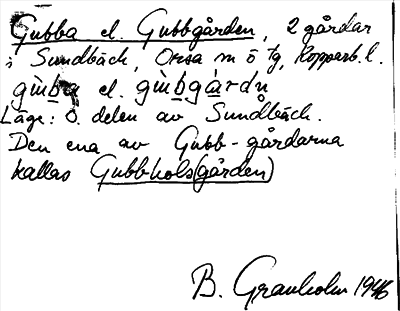 Gubba el. Gubbgården, 2 gårdar
i Sundbäck, Orsa m ö tg, Kopparb. l.
gùba el. gùbgàrdn
Läge: Ö. delen av Sundbäck.
Den ena av Gubb-gårdarna
kallas Gubbhols(gården)
B. Granholm 1946